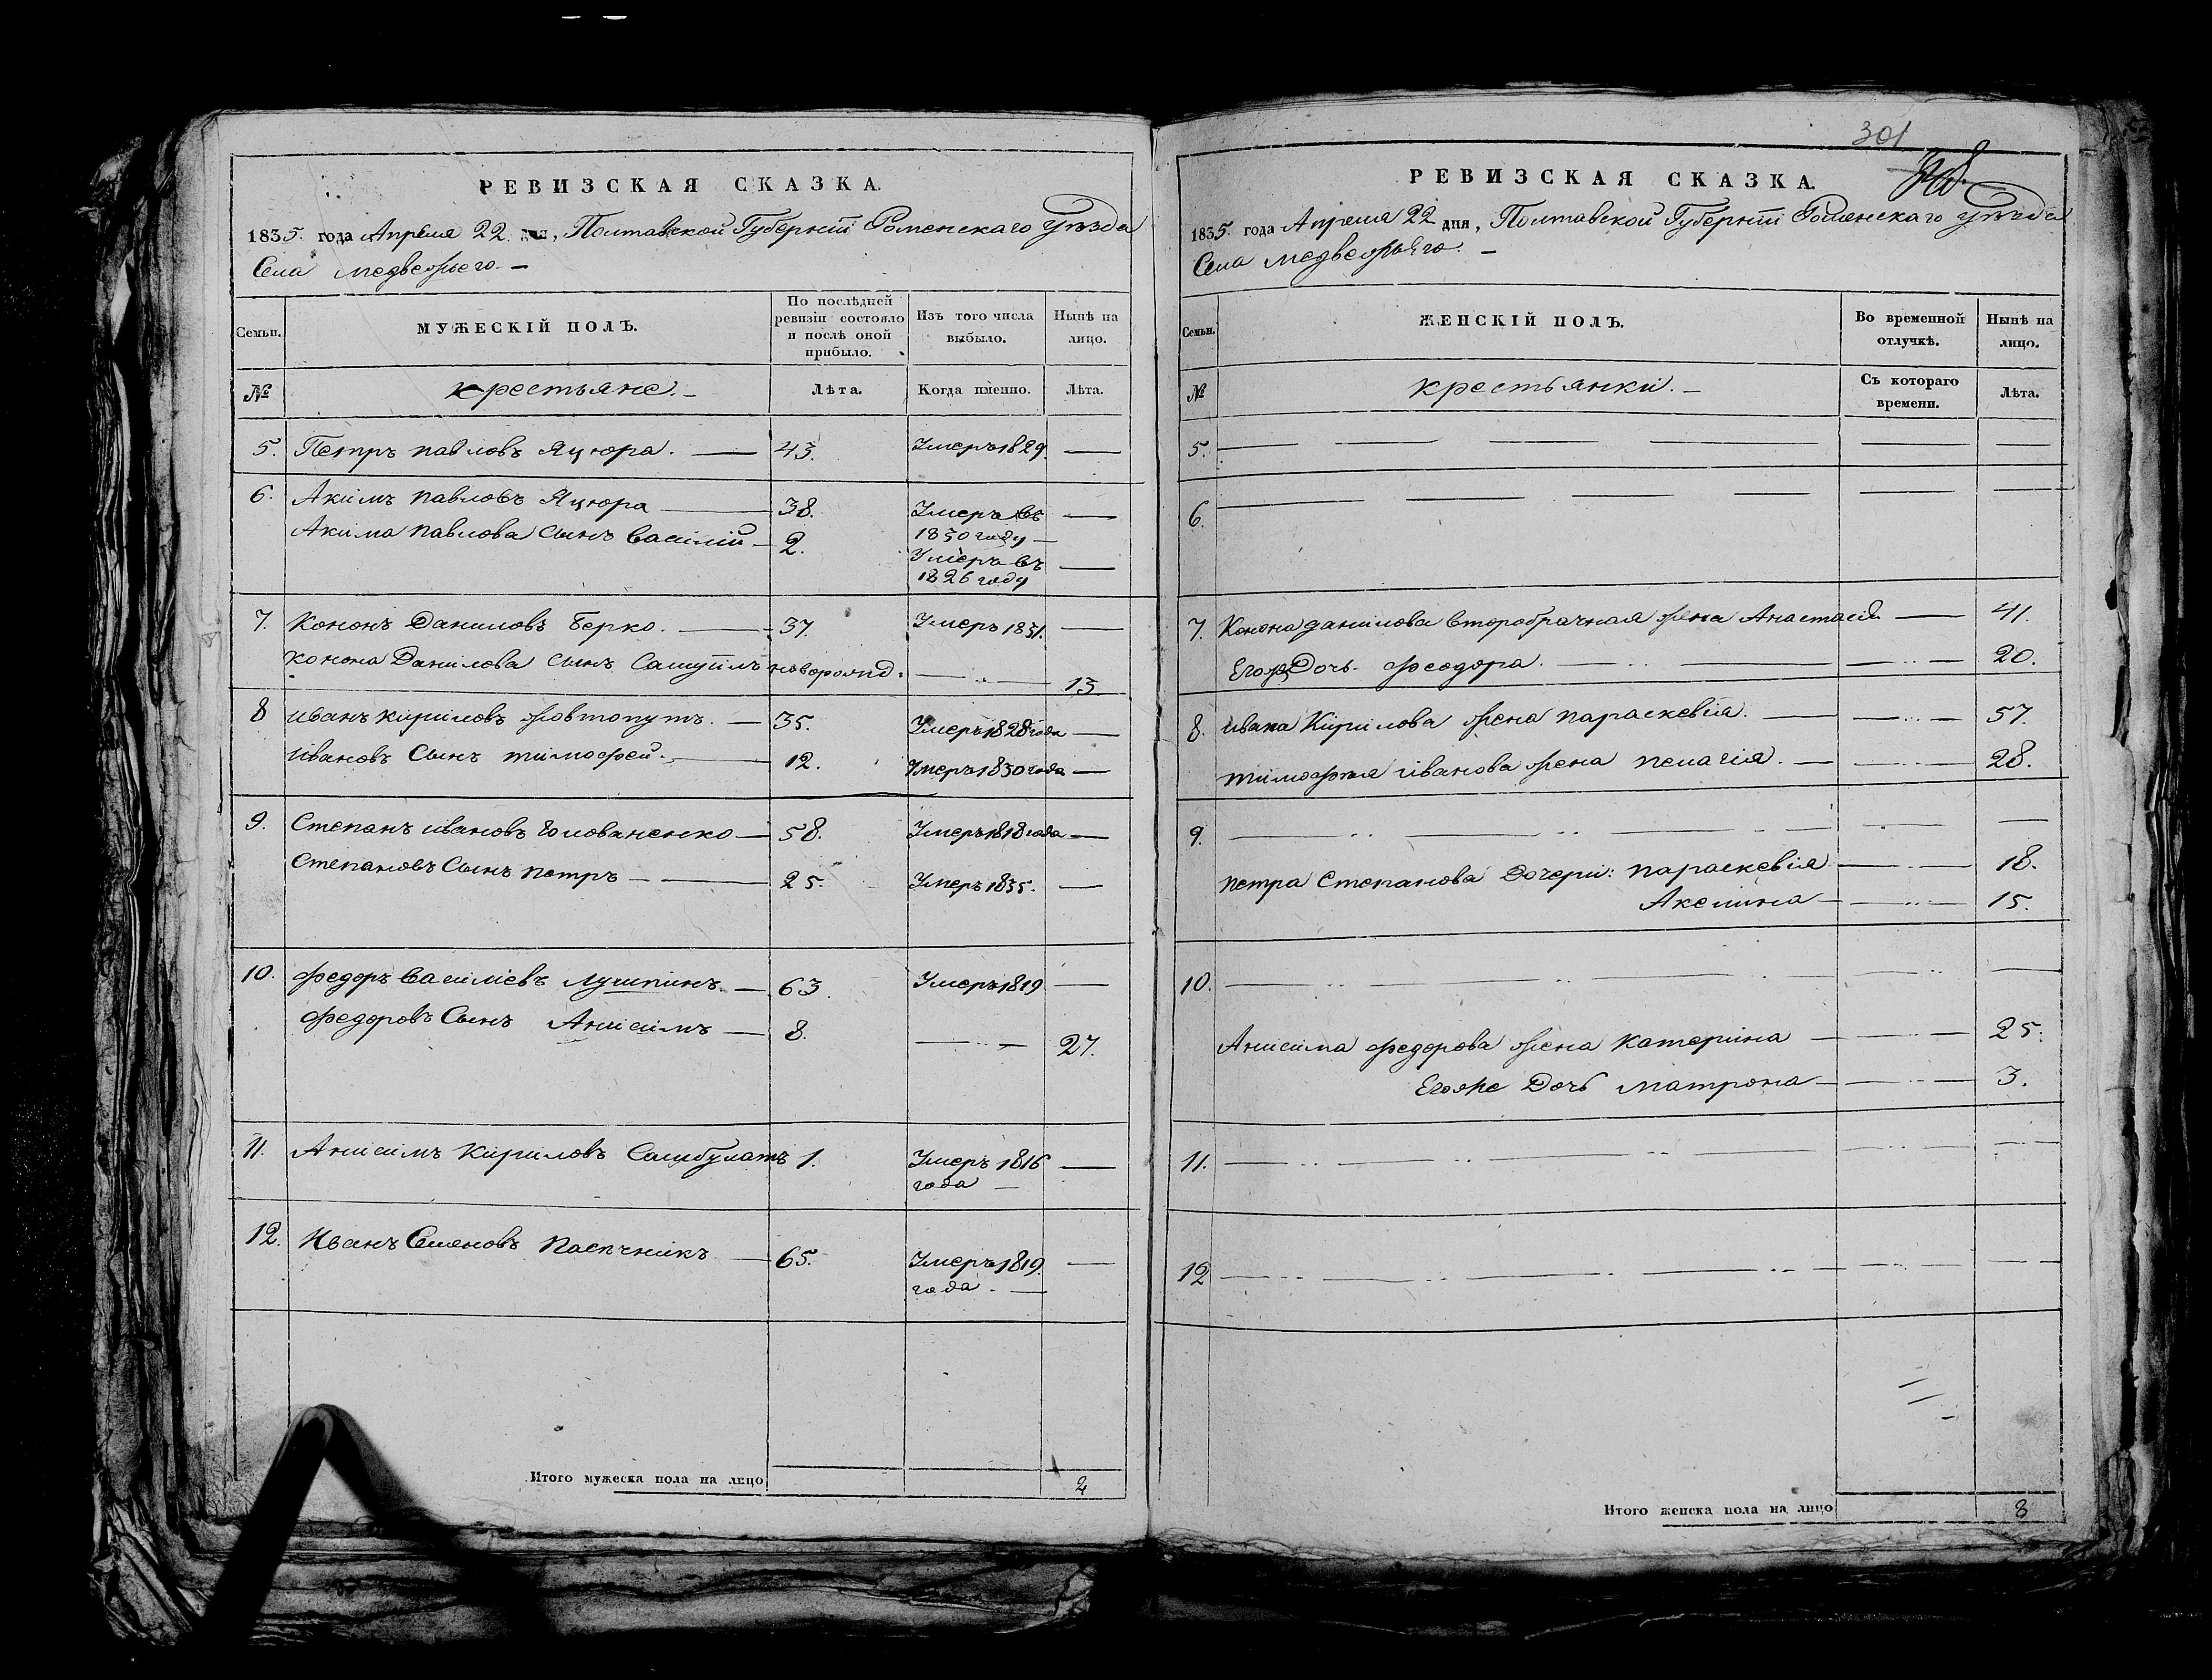 РЕВИЗСКАЯ СКАЗКА.
1835. года Апреля 22 дня, Полтавской Губерніи Роменскаго Уѣзда
Села Медвежьего. —
Семьи.
МУЖЕСКІЙ ПОЛЪ.
По послѣдней ревизіи состояло и послѣ оной прибыло.
Изъ того числа выбыло.
Нынѣ на лицо.
№
крестьяне. —
Лѣта.
Когда именно.
Лѣта.
5. Петръ Павловъ Яцюра. — 43. Умеръ 1829. —
6. Акимъ Павловъ Яцюра — 38. Умеръ въ 1830 году —
Акима Павлова Сынъ Василій — 2. Умеръ въ 1826 году —
7. Кононъ Даниловъ Берко. — 37. Умеръ 1831. —
Конона Данилова Сынъ Самуйлъ новорожд. — 13
8 Иванъ Кириловъ Жовтопутъ. — 35. Умеръ 1828 года —
Ивановъ Сынъ Тимофей. — 12. Умеръ 1830 года —
9. Степанъ Ивановъ Голованенко — 58. Умеръ 1818 года —
Степановъ Сынъ Петръ — 25. Умеръ 1835. —
10. Федоръ Василіевъ — 63. Умеръ 1819 —
Федоровъ Сынъ Анисимъ — 8. — 27.
11. Анисимъ Кириловъ Самбулатъ 1. Умеръ 1816 года —
12. Иванъ Семеновъ Пасѣчникъ — 65. Умеръ 1819. года. —
Итого мужеска пола на лицо 2
301
РЕВИЗСКАЯ СКАЗКА.
1835. года Апреля 22 дня, Полтавской Губерніи Роменскаго Уѣзда
Села Медвежьяго. —
Семьи.
ЖЕНСКІЙ ПОЛЪ.
Во временной отлучкѣ.
Нынѣ на лицо.
№
крестьянки. —
Съ котораго времени.
Лѣта.
5. —
6. —
7. Конона Данилова второбрачная жена Анастасія — 41.
Егожъ Дочь Феодора. — 20.
8. Ивана Кирилова жена Параскевія. — 57.
Тимофея Иванова жена Пелагія. — 28.
9. —
Петра Степанова Дочери: Параскевія — 18.
Аксинна — 15.
10. —
Анисима Федорова жена Катерина — 25.
Егоже Дочь Матрона — 3.
11. —
12 —
Итого женска пола на лицо 8